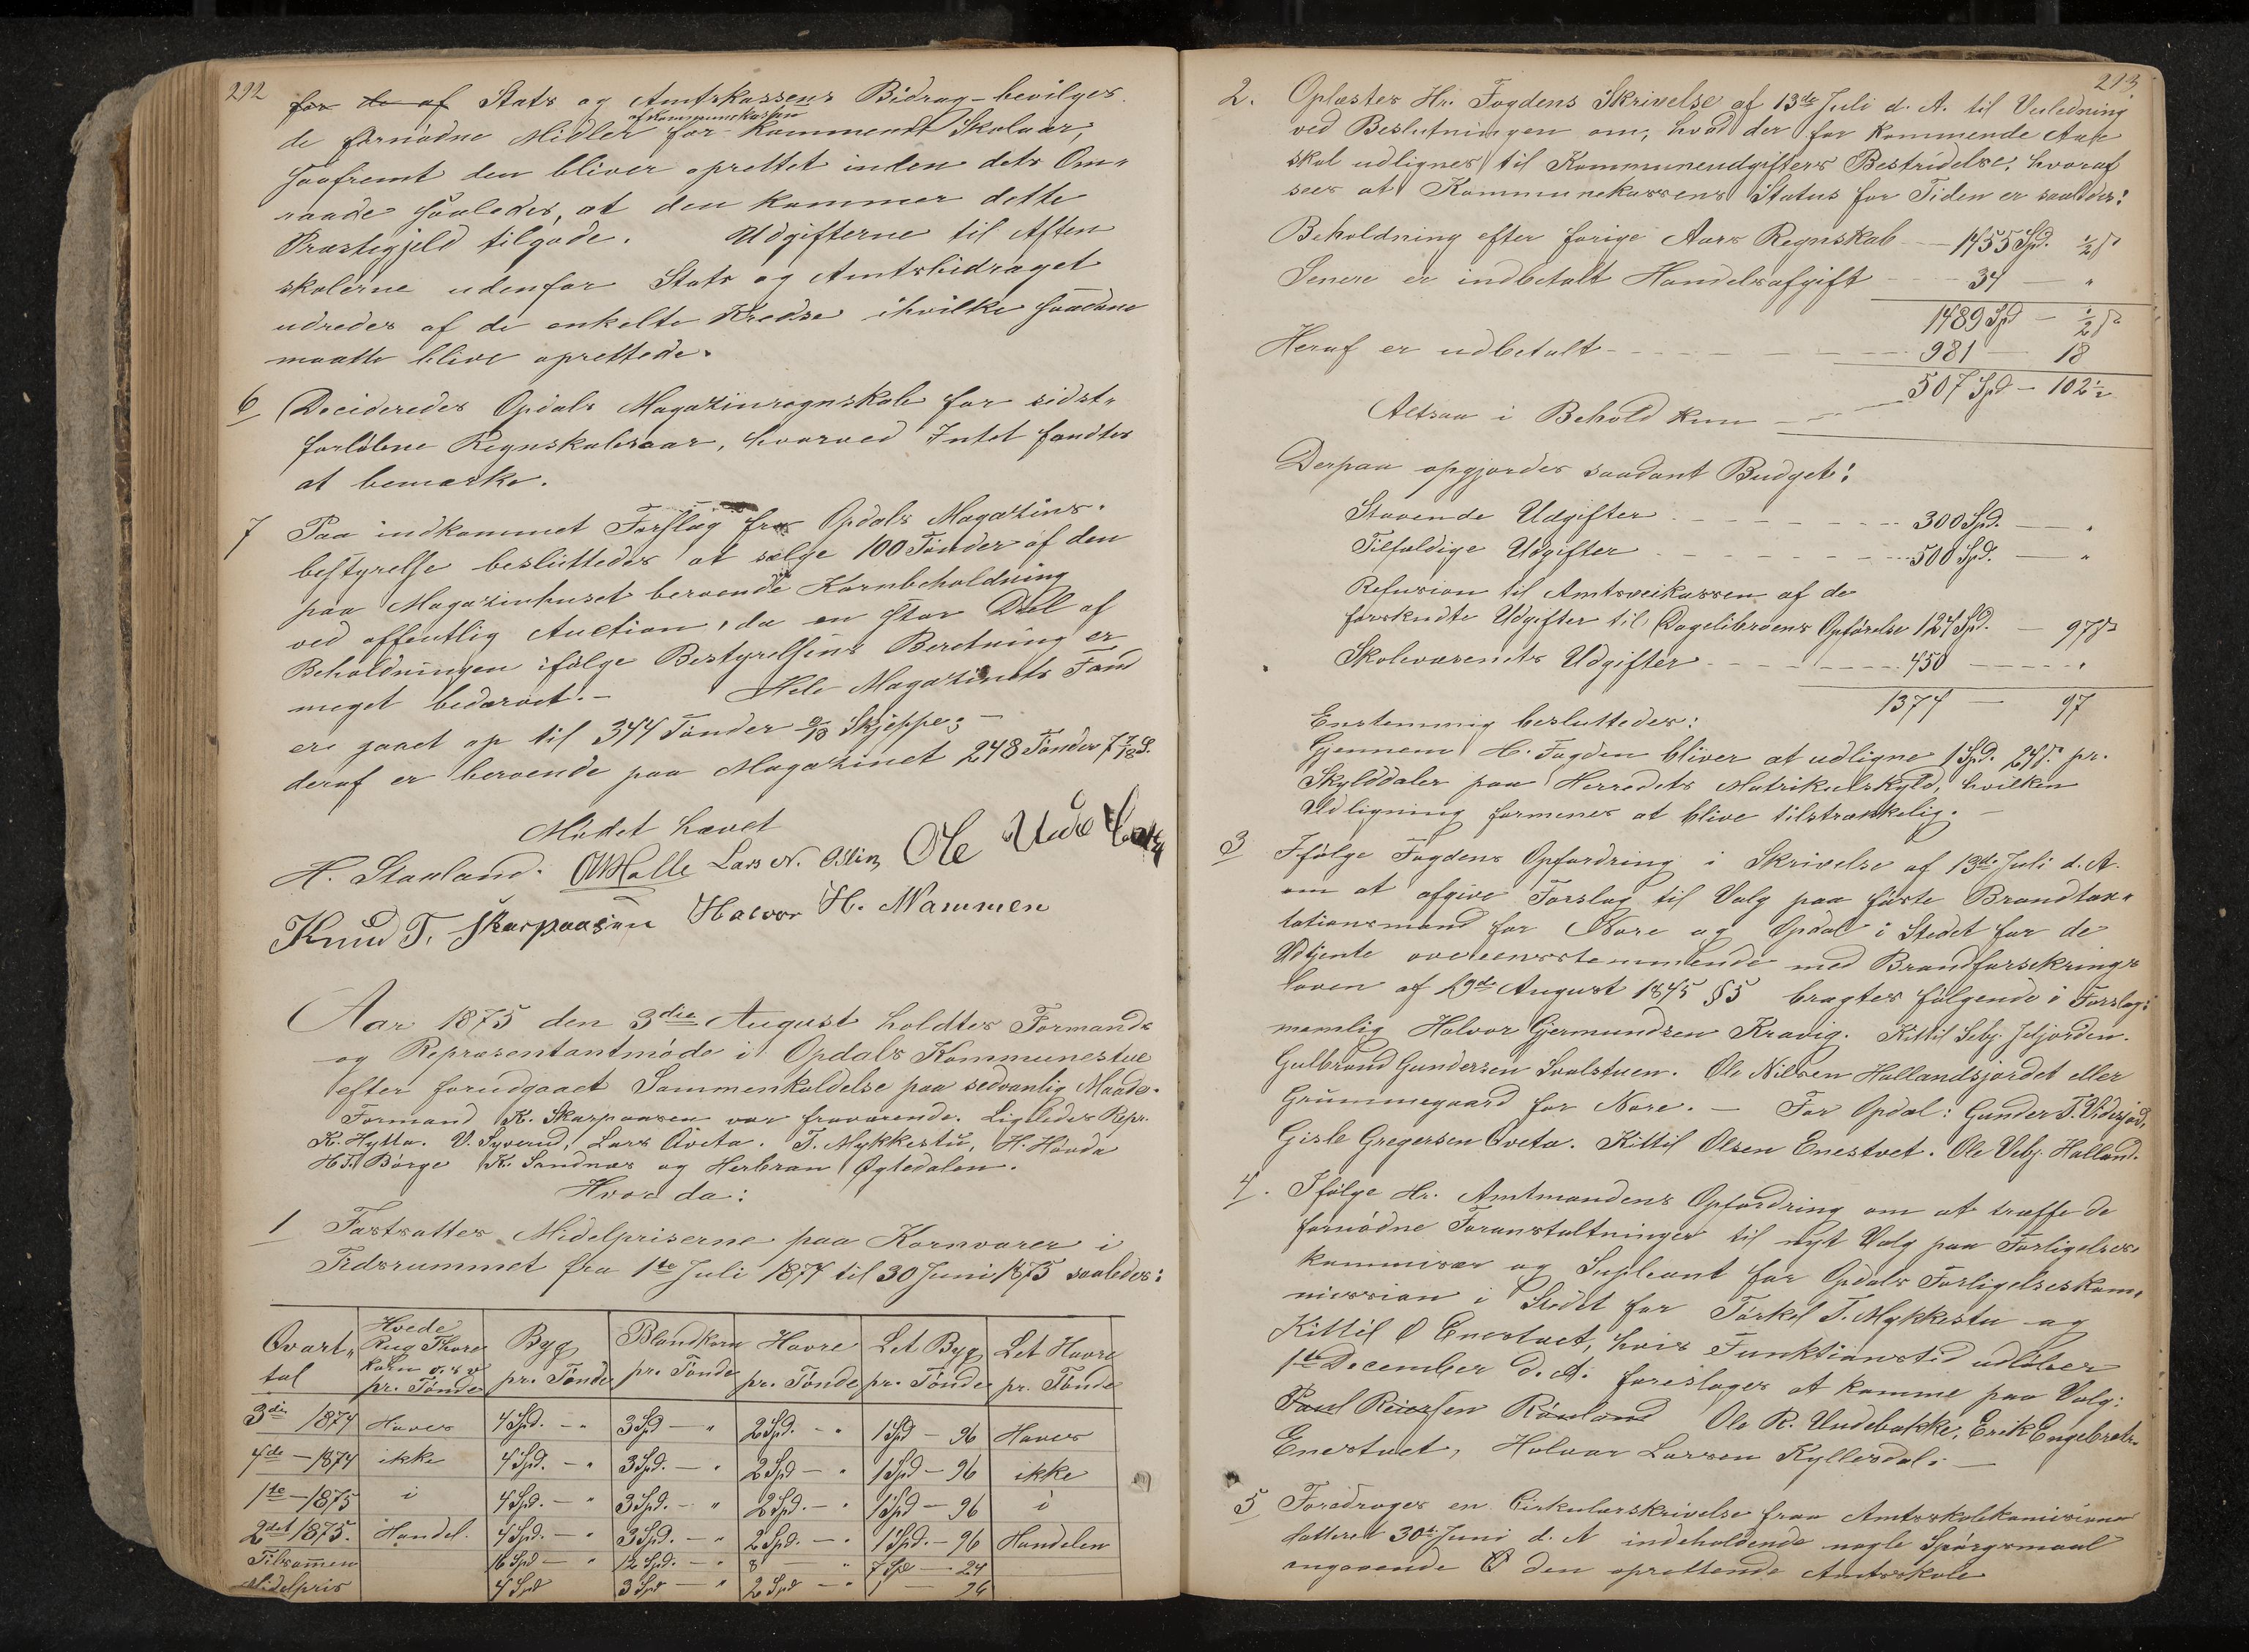 212
for de af Stats og Amtskassens Bidrag - bevilges
af Kommunekassen
de fornødne Midler for kommende Skoleaar,
saafremt den bliver oprettet inden dets Om-
raade saaledes, at den kommer dette
Præstegjeld tilgode. Udgifterne til Aften
skolerne udenfor Stats og Amtsbidraget
udredes af de enkelte Kredse ihvilke saadane
maatte blive oprettede.
6 Decideredes Opdals Magazinregnskab for sidst-
forløbne Regnskabsaar, hvorved Intet fandtes
at bemærke.
7 Paa indkommet Forslag fra Opdals Magazins-
bestyrelse besluttedes at sælge 100 Tønder af den
paa Magazinhuset beroende Kornbeholdning
ved offentlig Auction, da en stor Deel af
Beholdningen ifølge Bestyrelsens Beretning er
meget bedærvet. - Hele Magazinets Fond
er gaaet op til 344 Tønder Skjeppe; -
deraf er beroende paa Magazinet 248 Tønder 7 S.
Mødet hævet
H. Staaland. Lars N. Ole
Knud T. Skarpaasen Halvor H. Nammen
Aar 1875 den 3die August holdtes Formands
og Repræsentantmøde i Opdals Kommunestue
efter forudgaaet Sammenkaldelse paa sedvanlig Maade.
Formand K. Skarpaasen var fraværende. Ligeledes Repr.
K. Hytta. U. Syverud, Lars Qveta. T. Mykkestu, H. Hønda
H. T. Børge K. Sandnæs og Herbran Øgtedalen.
Hvor da:
1 Fastsattes Midelpriserne paa Kornvarer i
Tidsrummet fra 1ste Juli 1874 til 30 Juni 1875 saaledes:
Qvart-
tal
Hvede
Rug
pr. Tønde
Byg
pr. Tønde
Blandkorn
pr. Tønde
Havre
pr. Tønde
Let Byg
pr. Tønde
Let Havre
pr. Tønde
3die 1874 Haves 4 Spd. - " 3 Spd - " 2 Spd. - " 1 Spd - 96 Haves
4de - 1874 ikke 4 Spd. - " 3 Spd. - " 2 Spd - " 1 Spd - 96 ikke
1ste - 1875 i 4 Spd. - " 3 Spd. - " 2 Spd. - " 1 Spd - 96 i
2det 1875. Handel. 4 Spd. - " 3 Spd. - " 2 Spd. - " 1 Spd. - 96 Handelen
Tilsammen 16 Spd - " 12 Spd. - " 8 - " 7 Spd - 24
Midelpris 4 Spd 3 Spd - " 2 Spd - " 1 - 96
213.
2. Oplæstes Hr. Fogdens Skrivelse af 13de Juli d. A. til Veiledning
ved Beslutningen om, hvad der for kommende Aar
skal udlignes til Kommuneudgifters Bestridelse, hvoraf
sees at Kommunekassens Status for Tiden er saaledes:
Beholdning efter forige Aars Regnskab - 1455 Spd. ½ s
Senere er indbetalt Handelsafgift - 34 - "
1489 Spd - ½ s
Heraf er udbetalt - 981 - 18
507 Spd - 102½
Altsaa i Behold kun -
Derpaa opgjordes saadant Budget:
Staaende Udgifter - 300 Spd. - "
Tilfældige Udgifter - 500 Spd. - "
Refusion til Amtsveikassen af de
forskudte Udgifter til Dagelibroens Opførelse 124 Spd. - 97 s
Skolevæsenets Udgifter - 450 - "
1374 - 97
Enstemmig besluttedes:
Gjennem H. Fogden bliver at udligne 1 Spd. 24 s. pr.
Skylddaler paa Herredets Matrikulskyld, hvilken
Udligning formenes at blive tilstrækkelig. -
3 Ifølge Fogdens Opfordring i Skrivelse af 13de Juli d. A.
om at afgive Forslag til Valg paa første Brandtax-
tationsmand for Nore og Opdal i Stedet for de
Udtjente overensstemmende med Brandforsekrings
loven af 19de August 1845 §5 bragtes følgende i Forslag:
nemlig Halvor Gjermundsen Kravig. Kittil Seby. Jesjorden.
Gulbrand Gundersen Svalstuen. Ole Nilsen Hallandsjordet eller
Grummegaard for Nore. - For Opdal: Gunder T. Vidsjød,
Gisle Gregersen Qveta. Kittil Olsen Enestvet. Ole Veby. Halland.
4. Ifølge Hr. Amtmandens Opfordring om at træffe de
fornødne Foranstaltninger til nyt Valg paa Forligelses-
kommisær og Supleant for Opdals Forligelseskom-
mission i Stedet for Torkel T. Mykkestu og
Kittil O Enestvet, hvis Funktionstid udløber
1ste December d. A. foreslages at komme paa Valg:
Paul Reiersen Rauland Ole R. Undebakke, Erik Engebrets.
Enestvet, Halvor Larsen Kyllesdal. -
5 Foredroges en Cirkulærskrivelse fraa Amtsskolekomisionen
datteret 30te Juni d. A indeholdende nogle Spørgsmaal
angaaende den oprettende Amtsskole